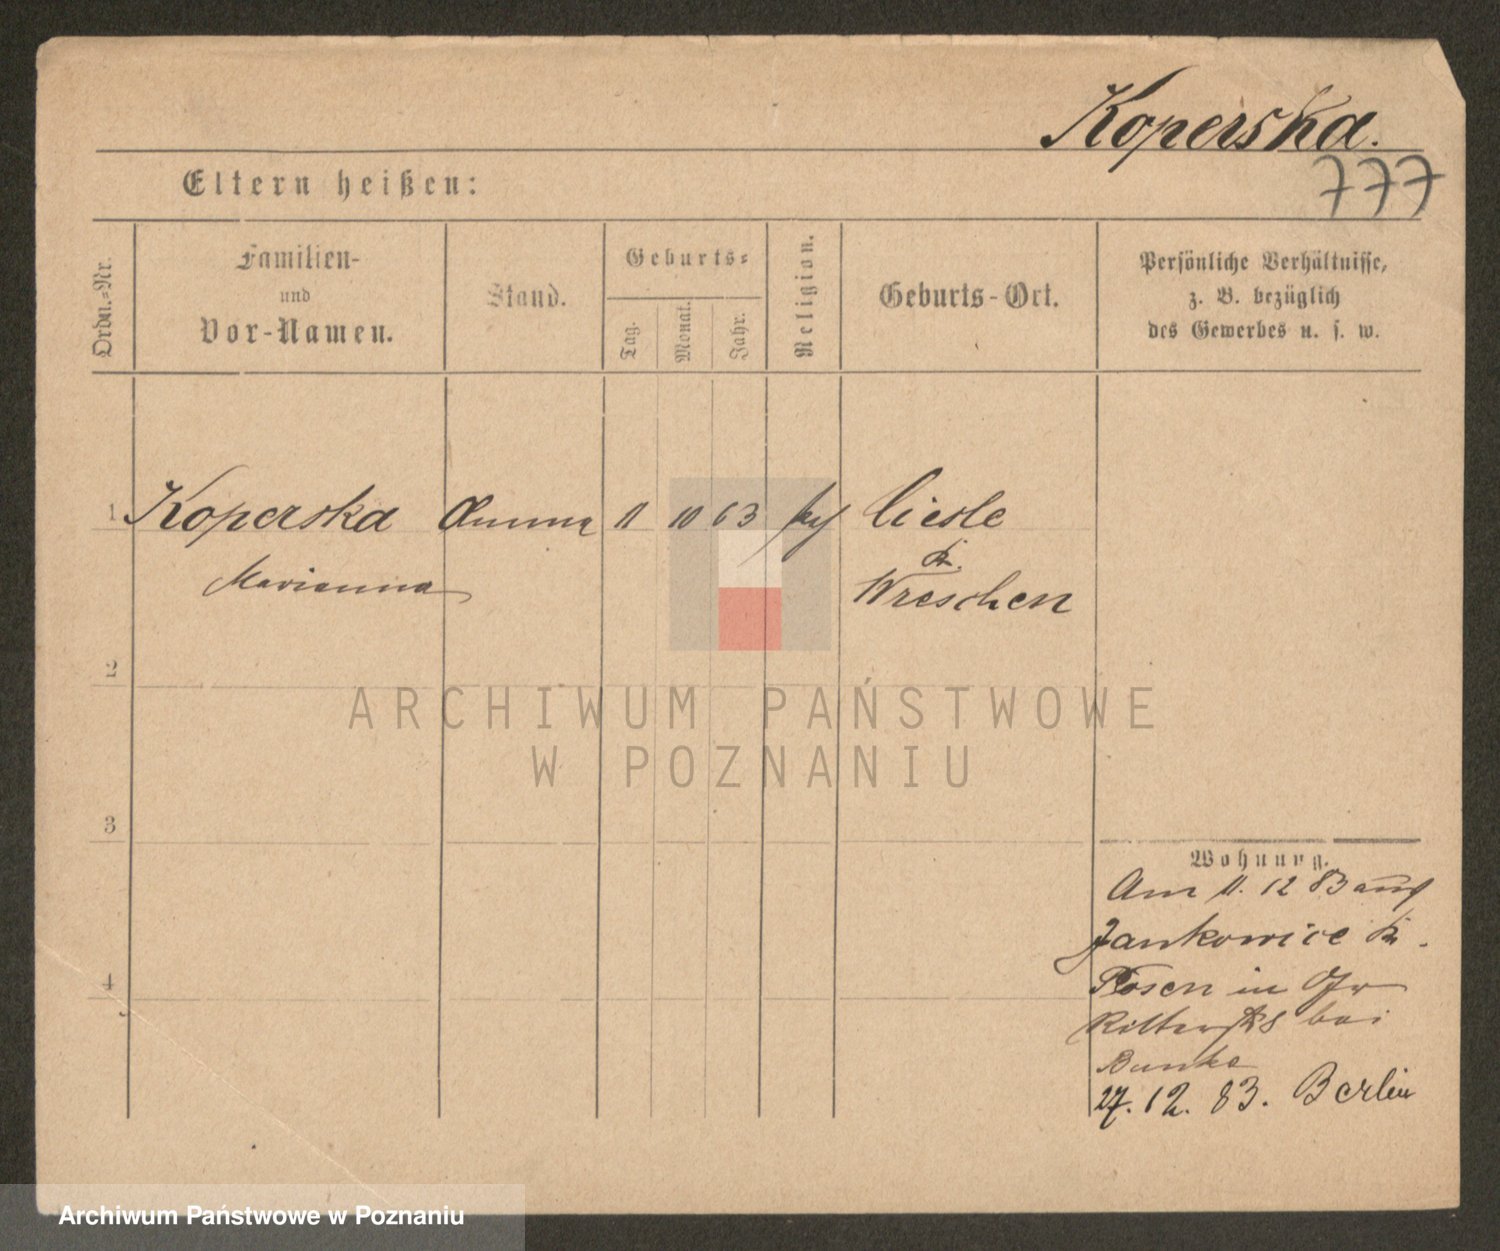 Koperska.
777
Eltern heißen:
Ordn.=Nr.
Familien-
und
Vor-Namen.
Stand.
Geburts=
Tag.
Monat.
Jahr.
Religion.
Geburts-Ort.
Persönliche Verhältnisse,
z. B. bezüglich
des Gewerbes u. s. w.
1 Koperska Amme 11 10 63 Ciesle
Marianna Kr.
Wreschen
2
3
4
Wohnung.
Am 11. 12 83 aus
Jankowice Kr.
Posen in
Ritterstr 8 bei
Bunke
27. 12. 83. Berlin
ARCHIWUM PAŃSTWOWE
W POZNANIU
Archiwum Państwowe w Poznaniu